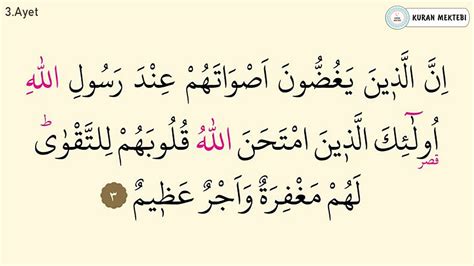 3.Ayet
KURAN MEKTEBİ
اِنَّ الَّذٖينَ يَغُضُّونَ اَصْوَاتَهُمْ عِنْدَ رَسُولِ اللّٰهِ
اُو۬لٰٓئِكَ الَّذٖينَ امْتَحَنَ اللّٰهُ قُلُوبَهُمْ لِلتَّقْوٰىؕ
قصر
لَهُمْ مَغْفِرَةٌ وَاَجْرٌ عَظٖيمٌ ٣